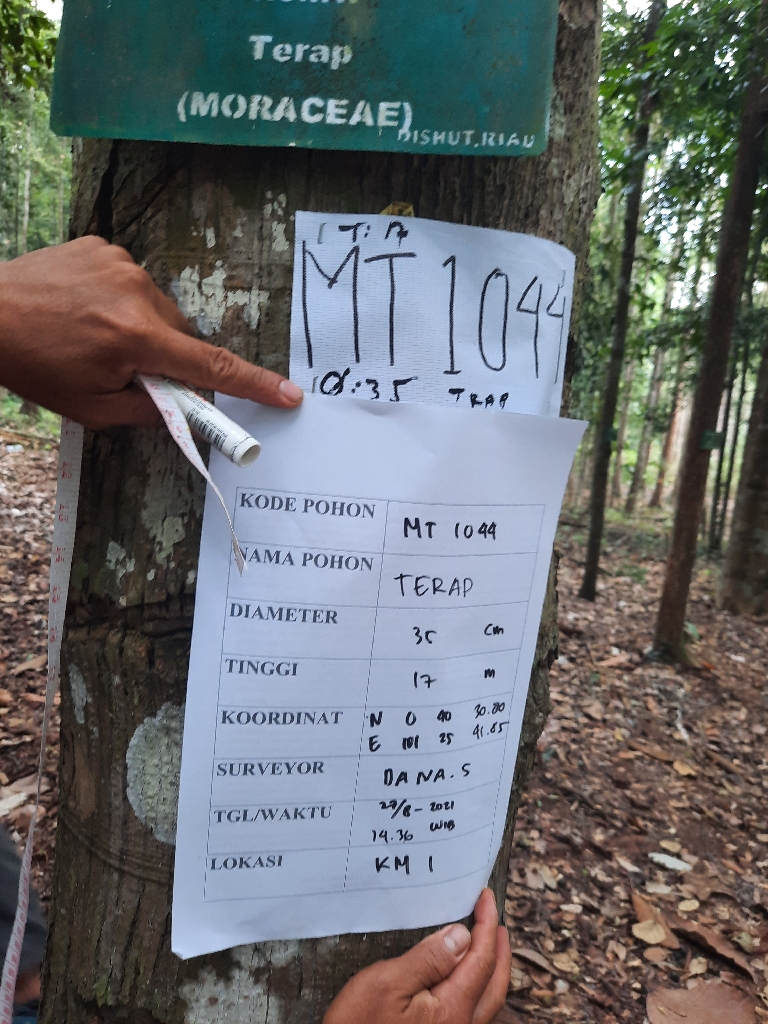 Terap
(MORACEAE)
DISHUT.RIAU
T: 17
MT 1044
Ø: 35 TRAP
KODE POHON MT 1044
NAMA POHON TERAP
DIAMETER 35 cm
TINGGI 17 m
KOORDINAT N 0 40 30.80
E 101 25 41.65
SURVEYOR DANA.S
TGL/WAKTU 27/8-2021
14.36 WIB
LOKASI KM 1